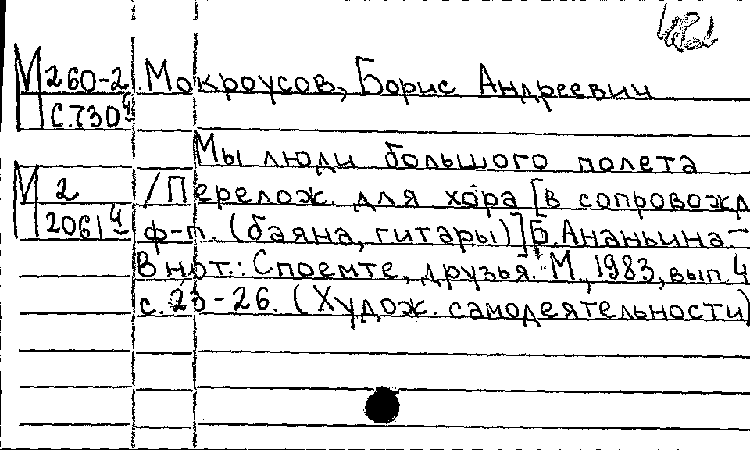 М 260-2 Мокроусов, Борис Андреевич
С.730ч
Мы люди большого полета
М 2 /Перелож. для хора [в сопровожд
2061ч ф-п. (баяна, гитары)] Б.Ананьина.-
В нот.: Споемте, друзья. М., 1983, вып.4
с.23-26. (Худож. самодеятельности)